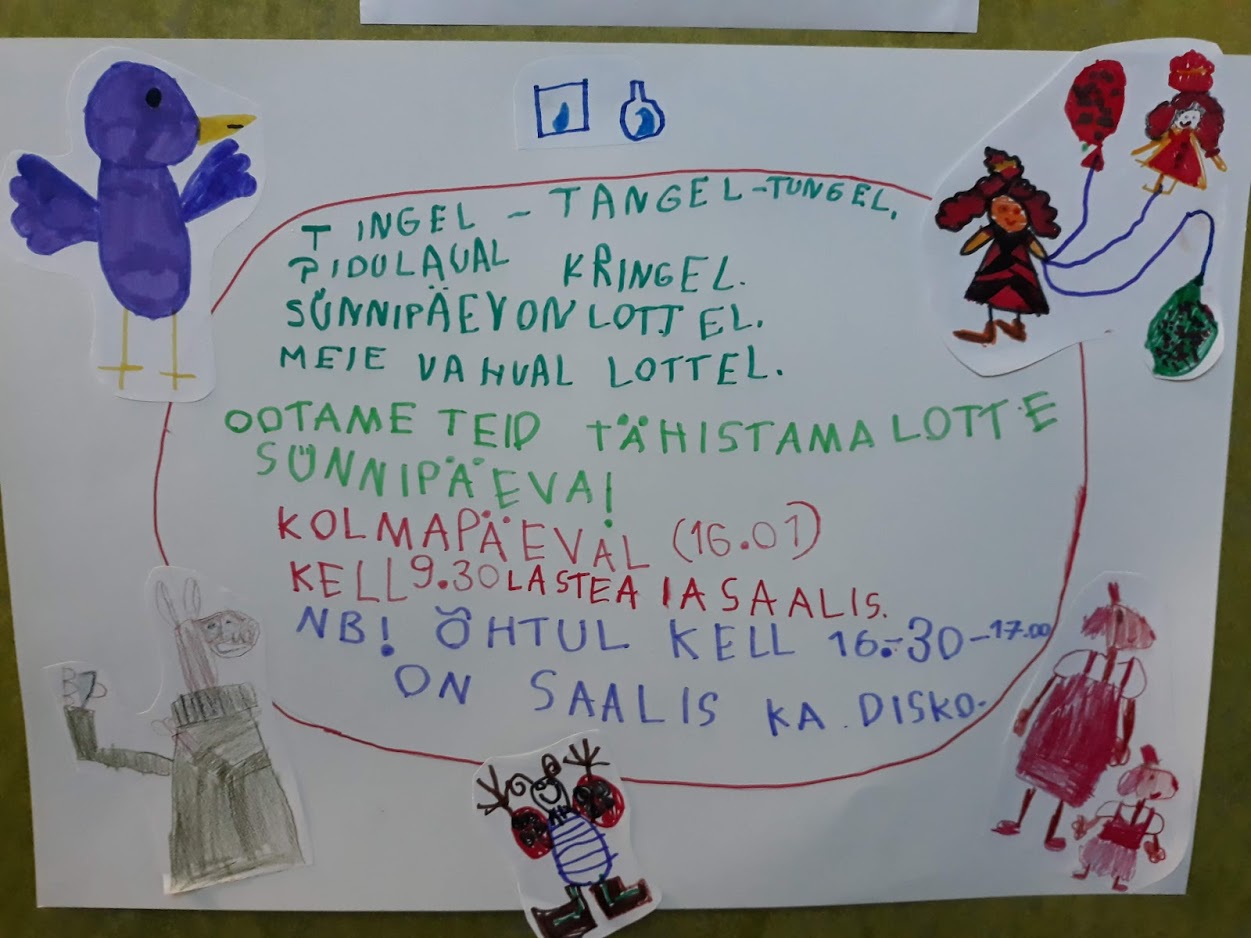 TINGEL - TANGEL-TUNGEL,
PIDULAUAL KRINGEL.
SÜNNIPÄEV ON LOTTEL.
MEIE VAHVAL LOTTEL.
OOTAME TEID TÄHISTAMA LOTTE
SÜNNIPÄEVA!
KOLMAPÄEVAL (16.01)
KELL 9.30 LASTEAIA SAALIS.
NB! ÕHTUL KELL 16.30-17.00
ON SAALIS KA DISKO.